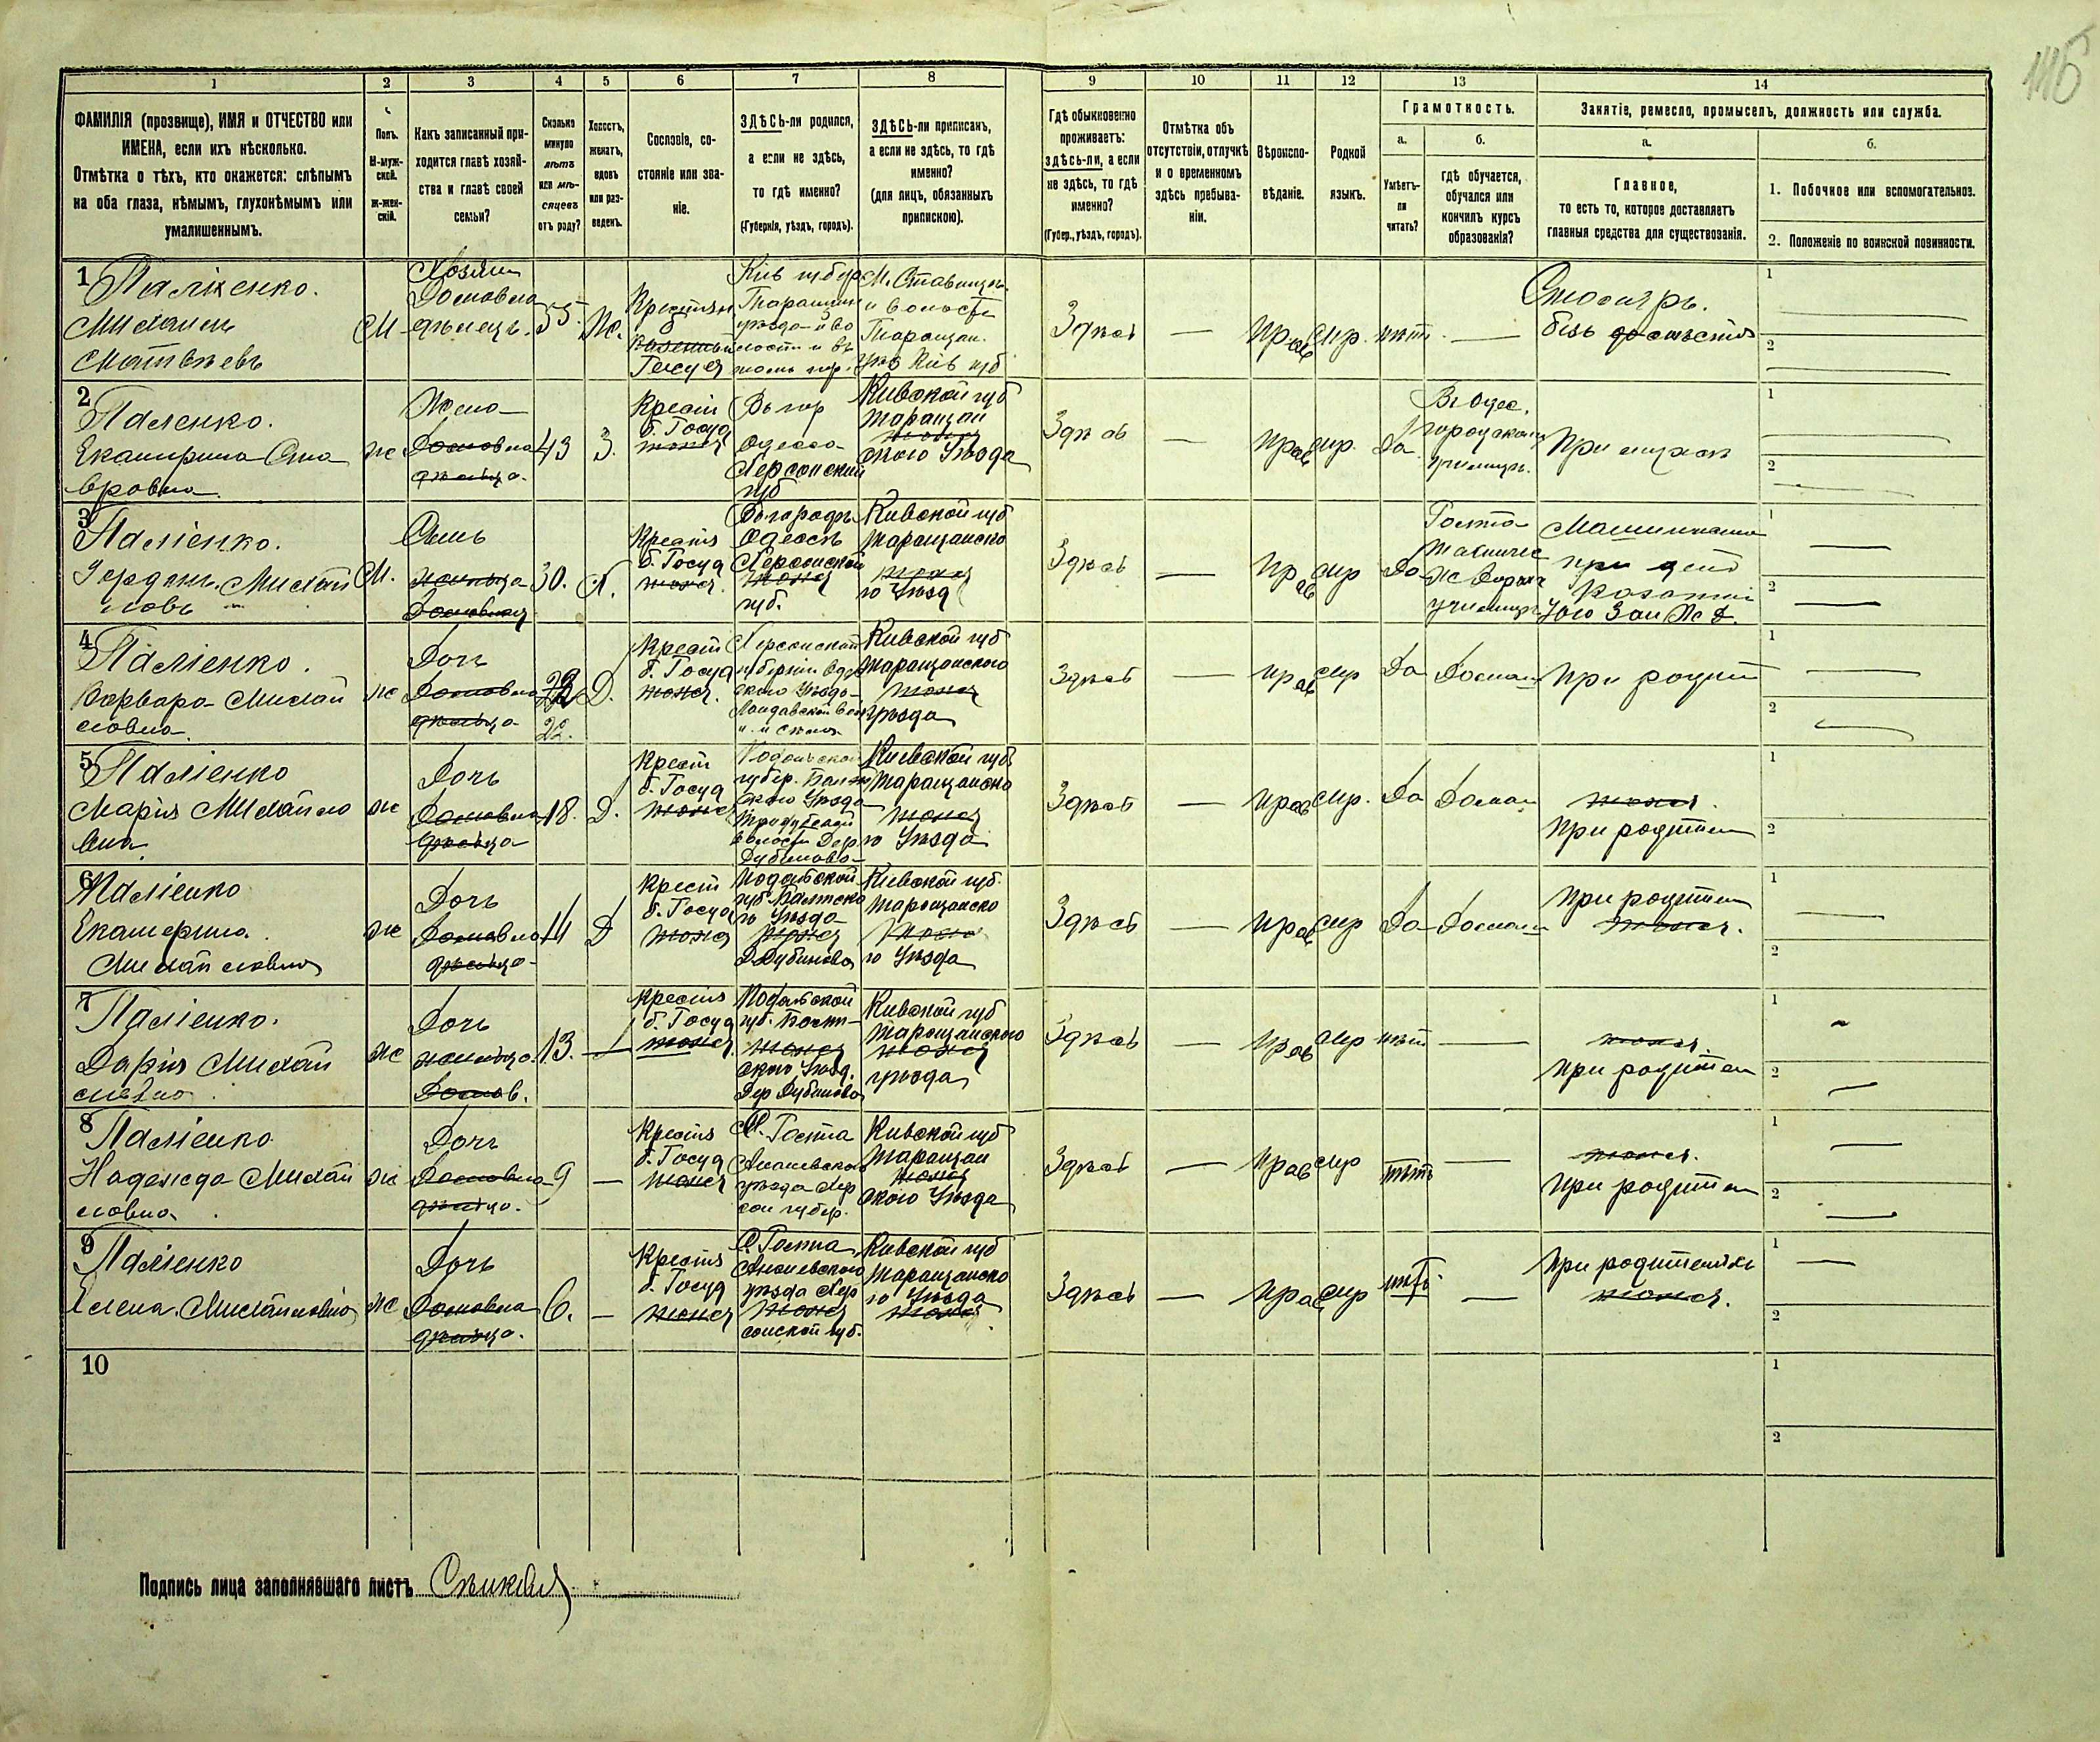 116
1 2 3 4 5 6 7 8 9 10 11 12 13 14
ФАМИЛІЯ (прозвище), ИМЯ и ОТЧЕСТВО или
ИМЕНА, если ихъ нѣсколько.
Отмѣтка о тѣхъ, кто окажется: слѣпымъ
на оба глаза, нѣмымъ, глухонѣмымъ или
умалишеннымъ.
Полъ.
М-муж-
ской.
ж-жен-
скій.
Какъ записанный при-
ходится главѣ хозяй-
ства и главѣ своей
семьи?
Сколько
минуло
лѣтъ
или мѣ-
сяцевъ
отъ роду?
Холостъ,
женатъ,
вдовъ
или раз-
веденъ.
Сословіе, со-
стояніе или зва-
ніе.
ЗДѢСЬ-ли родился,
а если не здѣсь,
то гдѣ именно?
(Губернія, уѣздъ, городъ).
ЗДѢСЬ-ли приписанъ,
а если не здѣсь, то гдѣ
именно?
(для лицъ, обязанныхъ
припискою).
Гдѣ обыкновенно
проживаетъ:
здѣсь-ли, а если
не здѣсь, то гдѣ
именно?
(Губер., уѣздъ, городъ).
Отмѣтка объ
отсутствіи, отлучкѣ
и о временномъ
здѣсь пребыва-
ніи.
Вѣроиспо-
вѣданіе.
Родной
языкъ.
Грамотность.
а.
Умѣетъ-
ли
читать?
б.
гдѣ обучается,
обучался или
кончилъ курсъ
образованія?
Занятіе, ремесло, промыселъ, должность или служба.
а.
Главное,
то есть то, которое доставляетъ
главныя средства для существованія.
б.
1. Побочное или вспомогательное.
2. Положеніе по воинской повинности.
1
Паліенко.
Михаилъ
Матвѣевъ
М
Хозяин
Домовла
дѣлецъ.
55.
Ж.
Крестьян
б.
Госуд
Кіев губер
Таращан
уѣзда
М. Ставищн.
и волости
Таращан.
Кіев губ
Здѣсь
—
Прав
мр.
нѣт.
—
Столяръ.
безъ
1
2
2
Паліенко.
Екатерина
ж
Жена
Домовла
дѣльца.
43
З.
Крест
б. Госуд
тоже
Въ гор
Одесса
Херсонской
губ
Кивской губ
таращан
ского Уѣзда
Здѣсь
—
Прав
мр.
Да
Въ Одес.
городском
училищѣ.
При мужѣ
1
2
3
Паліенко.
Михай
ловъ
М.
Сынъ
Домовлад
30.
Х.
Крестья
б. Госуд
тоже
Въ городѣ
Одессѣ
Херсонской
тоже
губ.
Кивской губ
таращанско
тоже
го Уѣзд
Здѣсь
—
Прав
мр
Да
училищ
Машинистъ
при депо
Юго Зап Ж Д.
1
2
4
Паліенко.
Варвара Михай
ловна
ж
Дочь
Домовла
дѣльца
22.
Д.
Крест
б. Госуд
тоже
Херсонской
губерніи
ского Уѣзда
Кивской губ
таращанского
тоже
уѣзда
Здѣсь
—
Прав
мр
Да
Домаш
При родит
1
2
5
Паліенко
Марія Михайло
вна
ж
Дочь
Домовла
дѣльца
18.
Д.
Крест
б. Госуд
тоже
Подольской
губер. Балт
ского Уѣзда
волости Дер.
Дубиново
Киевской губ
Таращанско
тоже
го Уѣзда
Здѣсь
—
Прав
мр.
Да
Домаш
тоже.
При родител
1
2
6
Паліенко
Екатерина
Михайловна
ж
Дочь
Домовла
дѣльца
Д
Крест
б. Госуд
тоже
Подольской
губ. Балтско
го Уѣзда
тоже
Д. Дубиново
Киевской губ.
Таращанско
го Уѣзда
Здѣсь
—
Прав
мр
Да
Домаш
При родител
тоже.
1
2
7
Паліенко.
Дарія Михай
ловна
ж
Дочь
Домов.
13.
—
Крестья
б. Госуд
тоже
Подольской
губ. Балт
тоже
ского Уѣзд.
Дер Дубиново
Кивской губ
таращанского
тоже
уѣзда
Здѣсь
—
Прав
мр
нѣт
—
тоже.
При родител
1
2
8
Паліенко
Надежда Михай
ловна
ж
Дочь
Домовла
дѣльца.
9
—
Крестья
б. Госуд
тоже
С. Голта
Ананевского
уѣзда Хер
сон губер.
Кивской губ
таращан
тоже
ского Уѣзда
Здѣсь
—
Прав
мр
нѣтъ
—
тоже.
При родител
1
2
9
Паліенко
Елена. Михайловна
ж
Дочь
Домовла
дѣльца.
6.
—
Крестья
б. Госуд
тоже
С. Голта
Ананевского
уѣзда Хер
тоже
сонской губ.
Кивской губ
таращанско
го Уѣзда
тоже
Здѣсь
—
Прав
мр
нѣтъ.
—
При родителяхъ
тоже.
1
2
10
1
2
Подпись лица заполнявшаго листъ